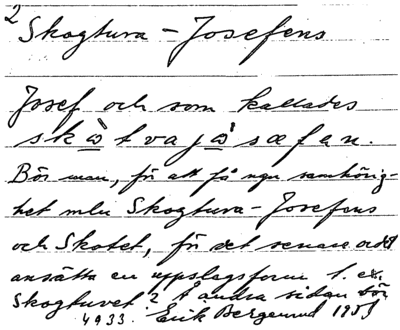 2
Skogtura - Josefens
Josef och som kallades
skὼtvajὼsæfan.
Bör man, för att få ngn samhörig-
het mln Skogtura-Josefens
och Skotet, för det senare ordet
ansätta en uppslagsform t. ex.
Skogtuvet? Å andra sidan bör
4933. Erik Bergelund 1951